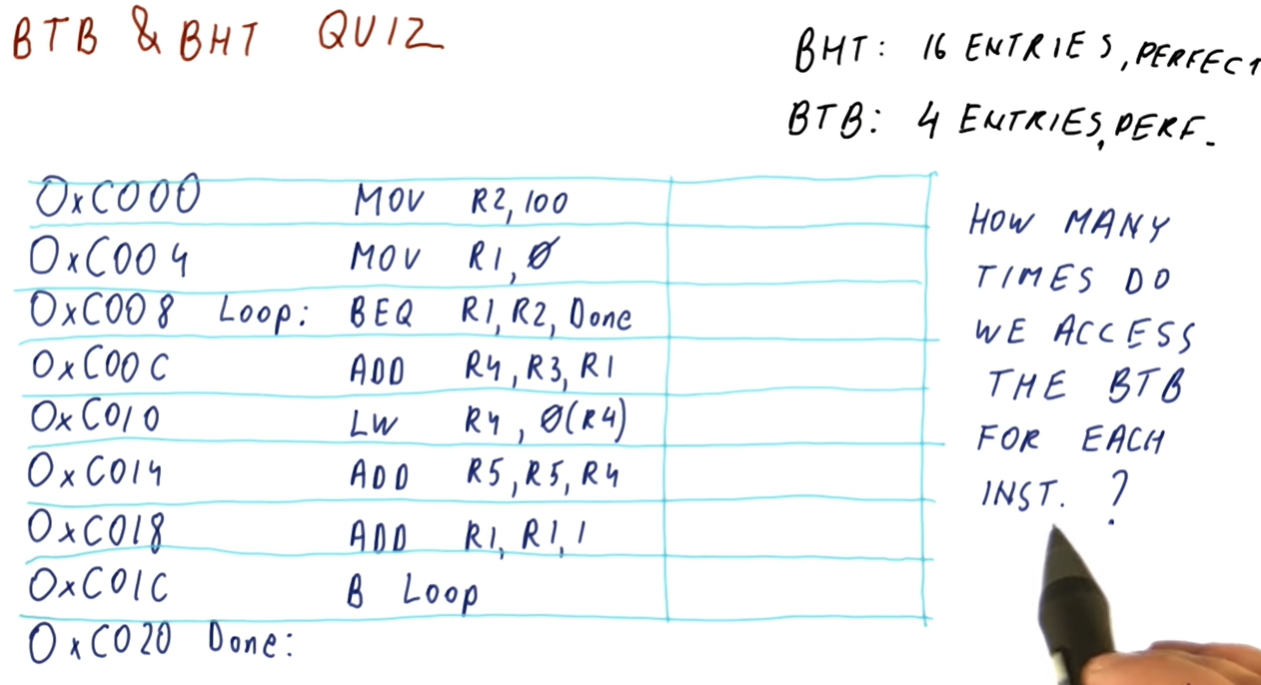 BTB & BHT QUIZ
BHT: 16 ENTRIES, PERFECT
BTB: 4 ENTRIES, PERF.
0xC000 MOV R2, 100
0xC004 MOV R1, 0
0xC008 Loop: BEQ R1, R2, Done
0xC00C ADD R4, R3, R1
0xC010 LW R4, 0(R4)
0xC014 ADD R5, R5, R4
0xC018 ADD R1, R1, 1
0xC01C B Loop
0xC020 Done:
HOW MANY
TIMES DO
WE ACCESS
THE BTB
FOR EACH
INST. ?